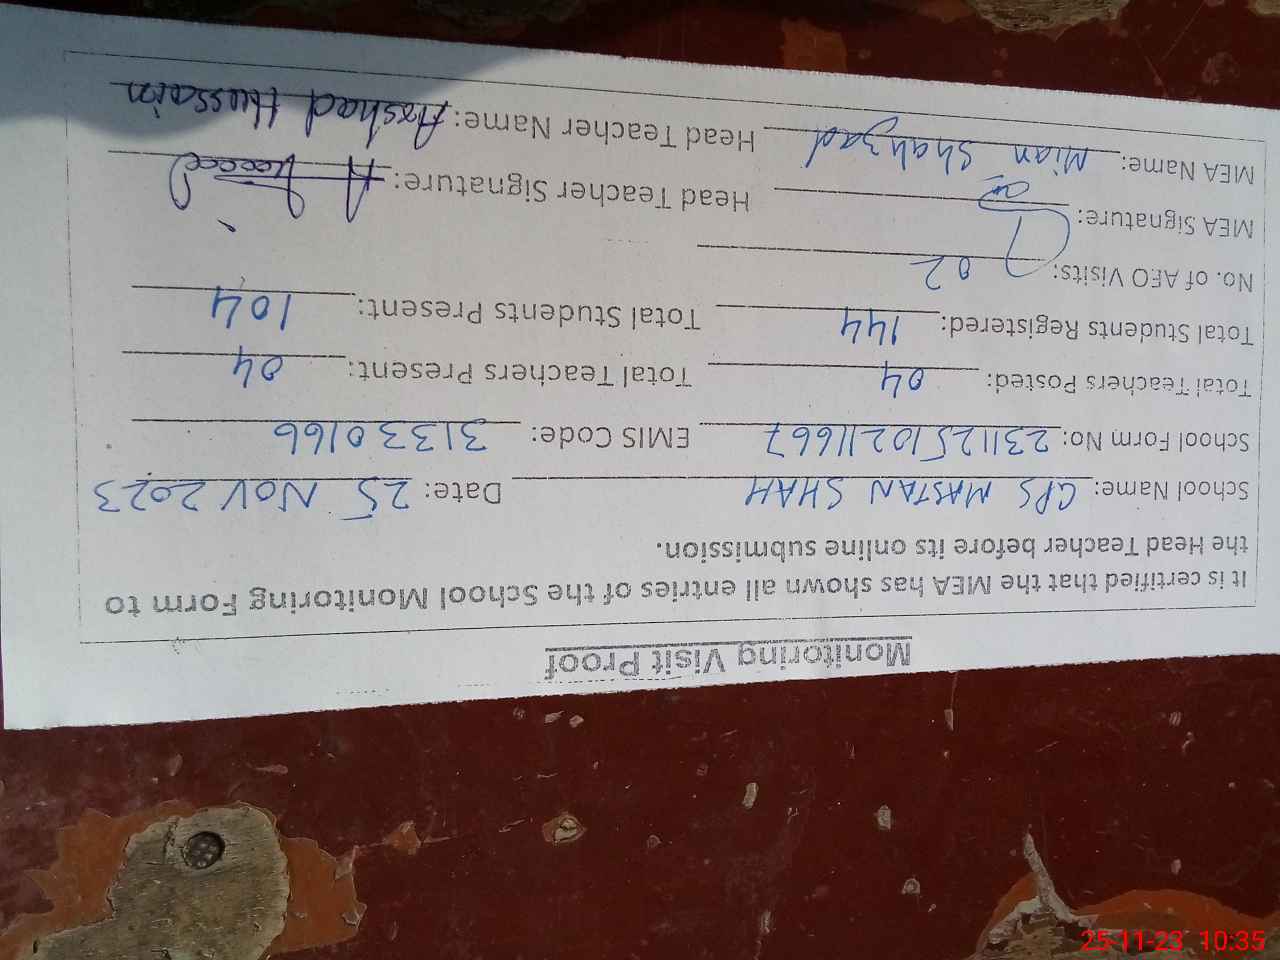 Monitoring Visit Proof
It is certified that the MEA has shown all entries of the School Monitoring Form to
the Head Teacher before its online submission.
School Name: GPS MASTAN SHAH Date: 25 NOV 2023
School Form No: 23112510211667 EMIS Code: 31330166
Total Teachers Posted: 04 Total Teachers Present: 04
Total Students Registered: 144 Total Students Present: 104
No. of AEO Visits: 02
MEA Signature: Head Teacher Signature:
MEA Name: Mian Shahzad Head Teacher Name: Arshad Hussain
25-11-23 10:35